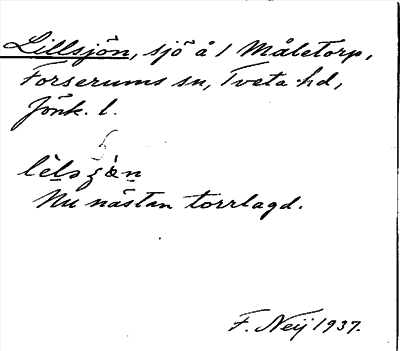 Lillsjön, sjö å 1 Måletorp,
Forserums sn, Tveta hd,
Jönk. l.
Nu nästan torrlagd.
F. Neij 1937.